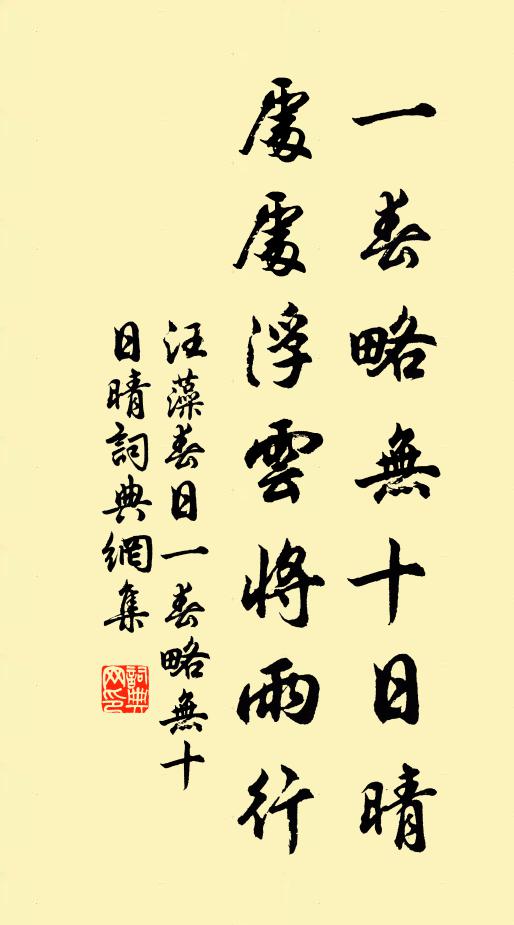 一春略無十日晴
處處浮雲將雨行
汪藻春日一春略無十
日晴詞典網集
詞典
网印